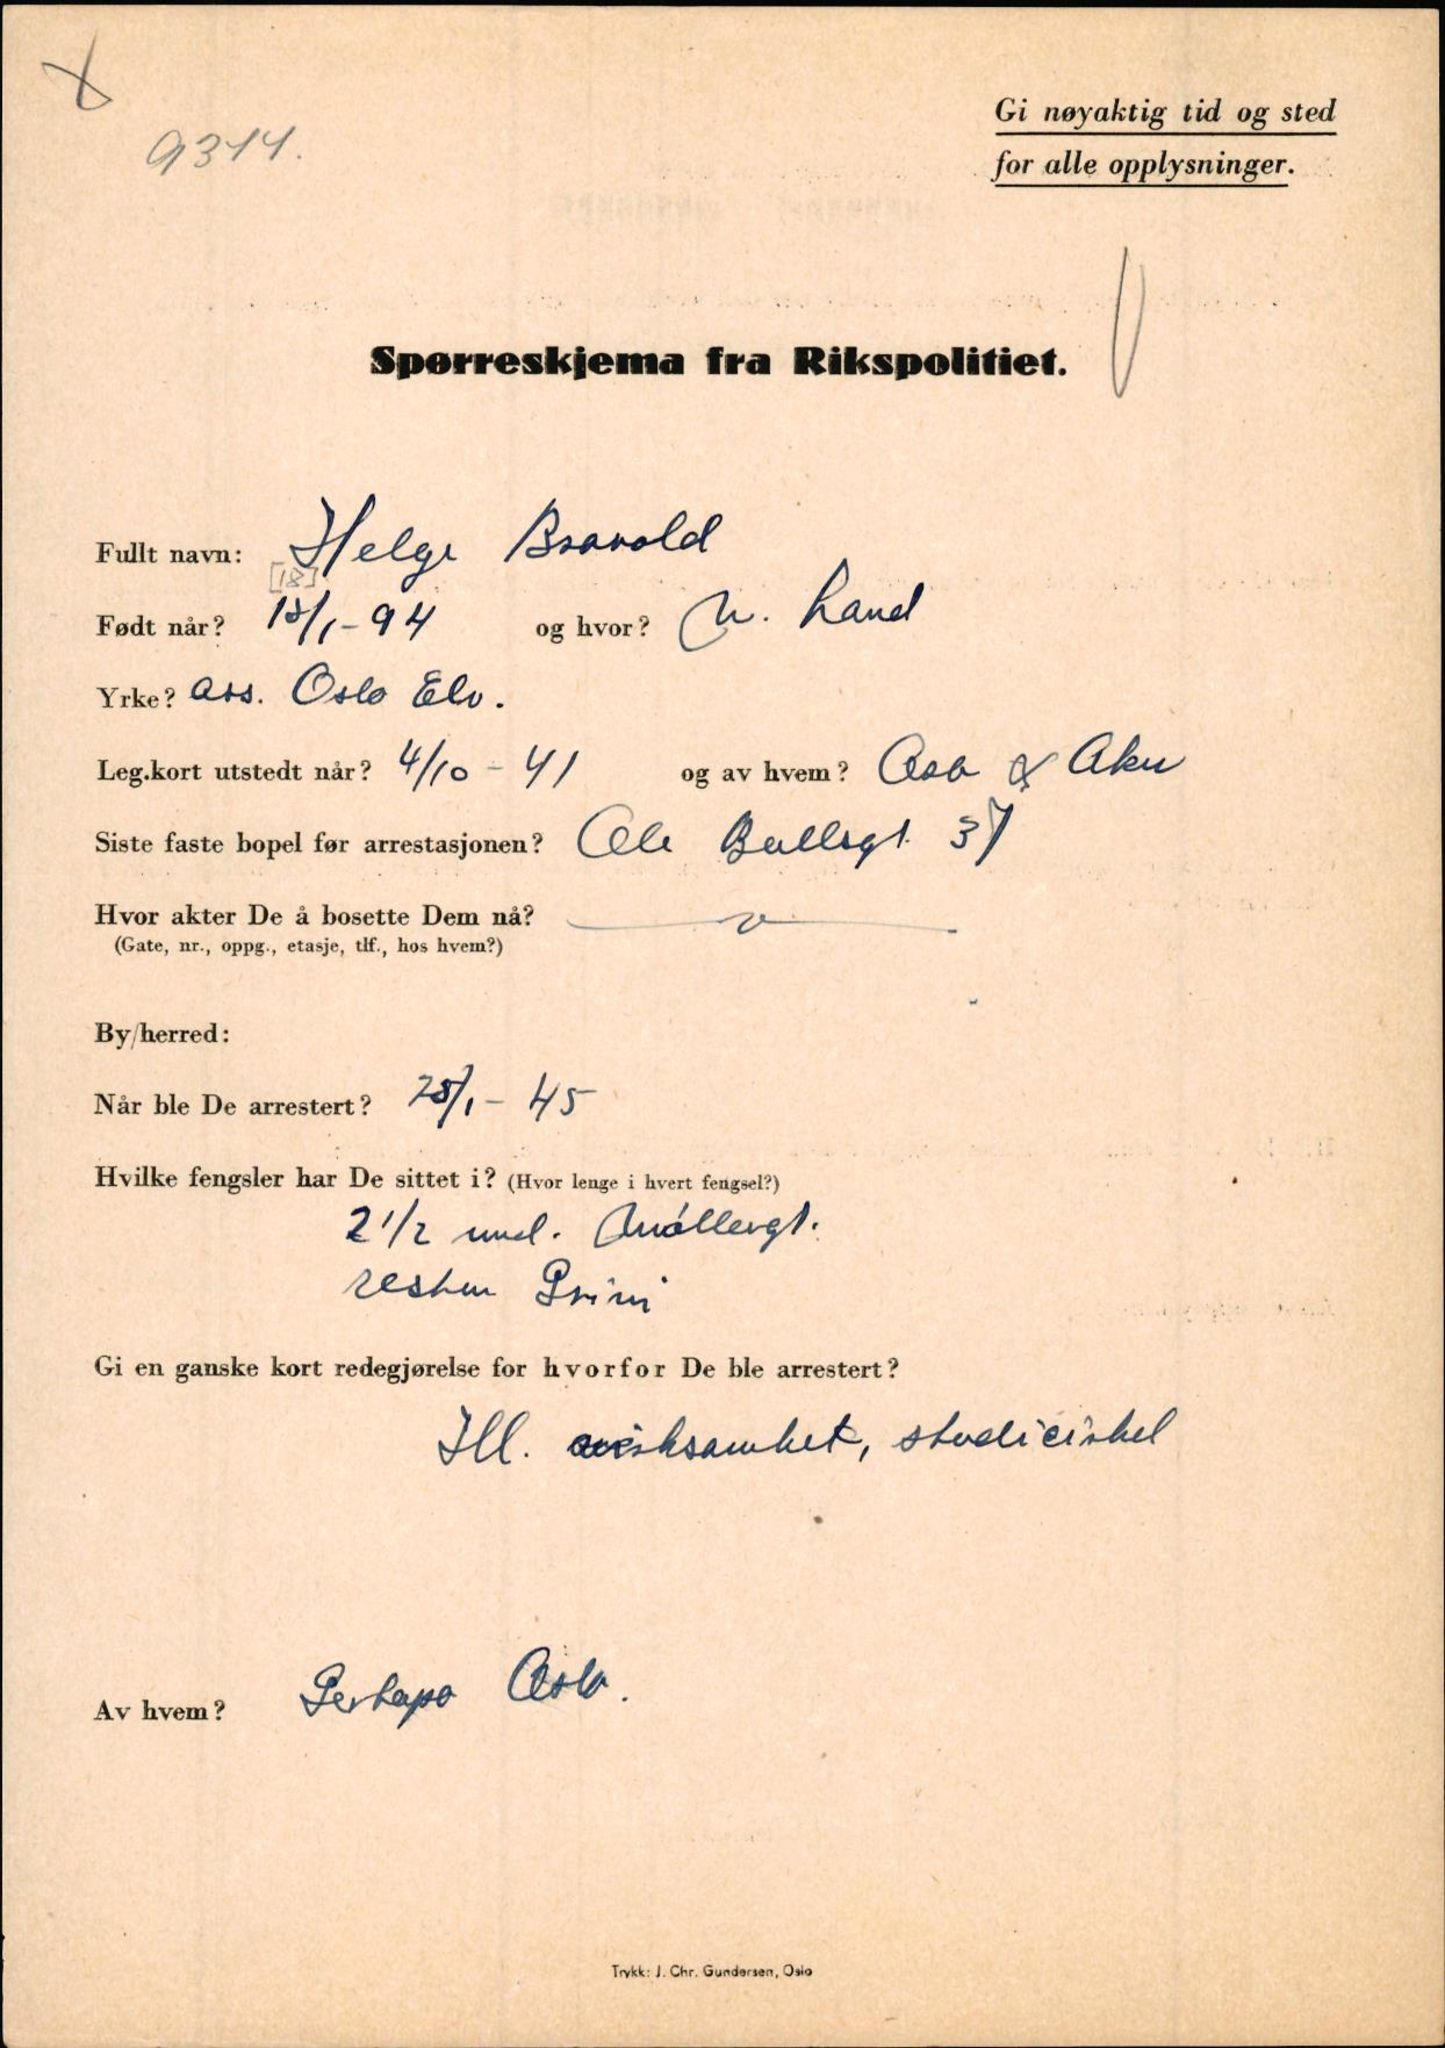 9344.
Gi nøyaktig tid og sted
for alle opplysninger.
Spørreskjema fra Rikspolitiet.
Fullt navn: Helge Bravold
[18]
Født når? 18/1-94 og hvor? N. Land
Yrke? ass. Oslo Elv.
Leg.kort utstedt når? 4/10-41 og av hvem? Oslo & Aker
Siste faste bopel før arrestasjonen? Ole Bullsgt. 37
Hvor akter De å bosette Dem nå?
(Gate, nr., oppg., etasje, tlf., hos hvem?)
By/herred:
Når ble De arrestert? 25/1-45
Hvilke fengsler har De sittet i? (Hvor lenge i hvert fengsel?)
2 1/2 mnd. Møllergt.
resten Grini
Gi en ganske kort redegjørelse for hvorfor De ble arrestert?
Ill. virksamhet, studiecirkel
Av hvem? Gestapo Oslo.
Trykk: J. Chr. Gundersen, Oslo